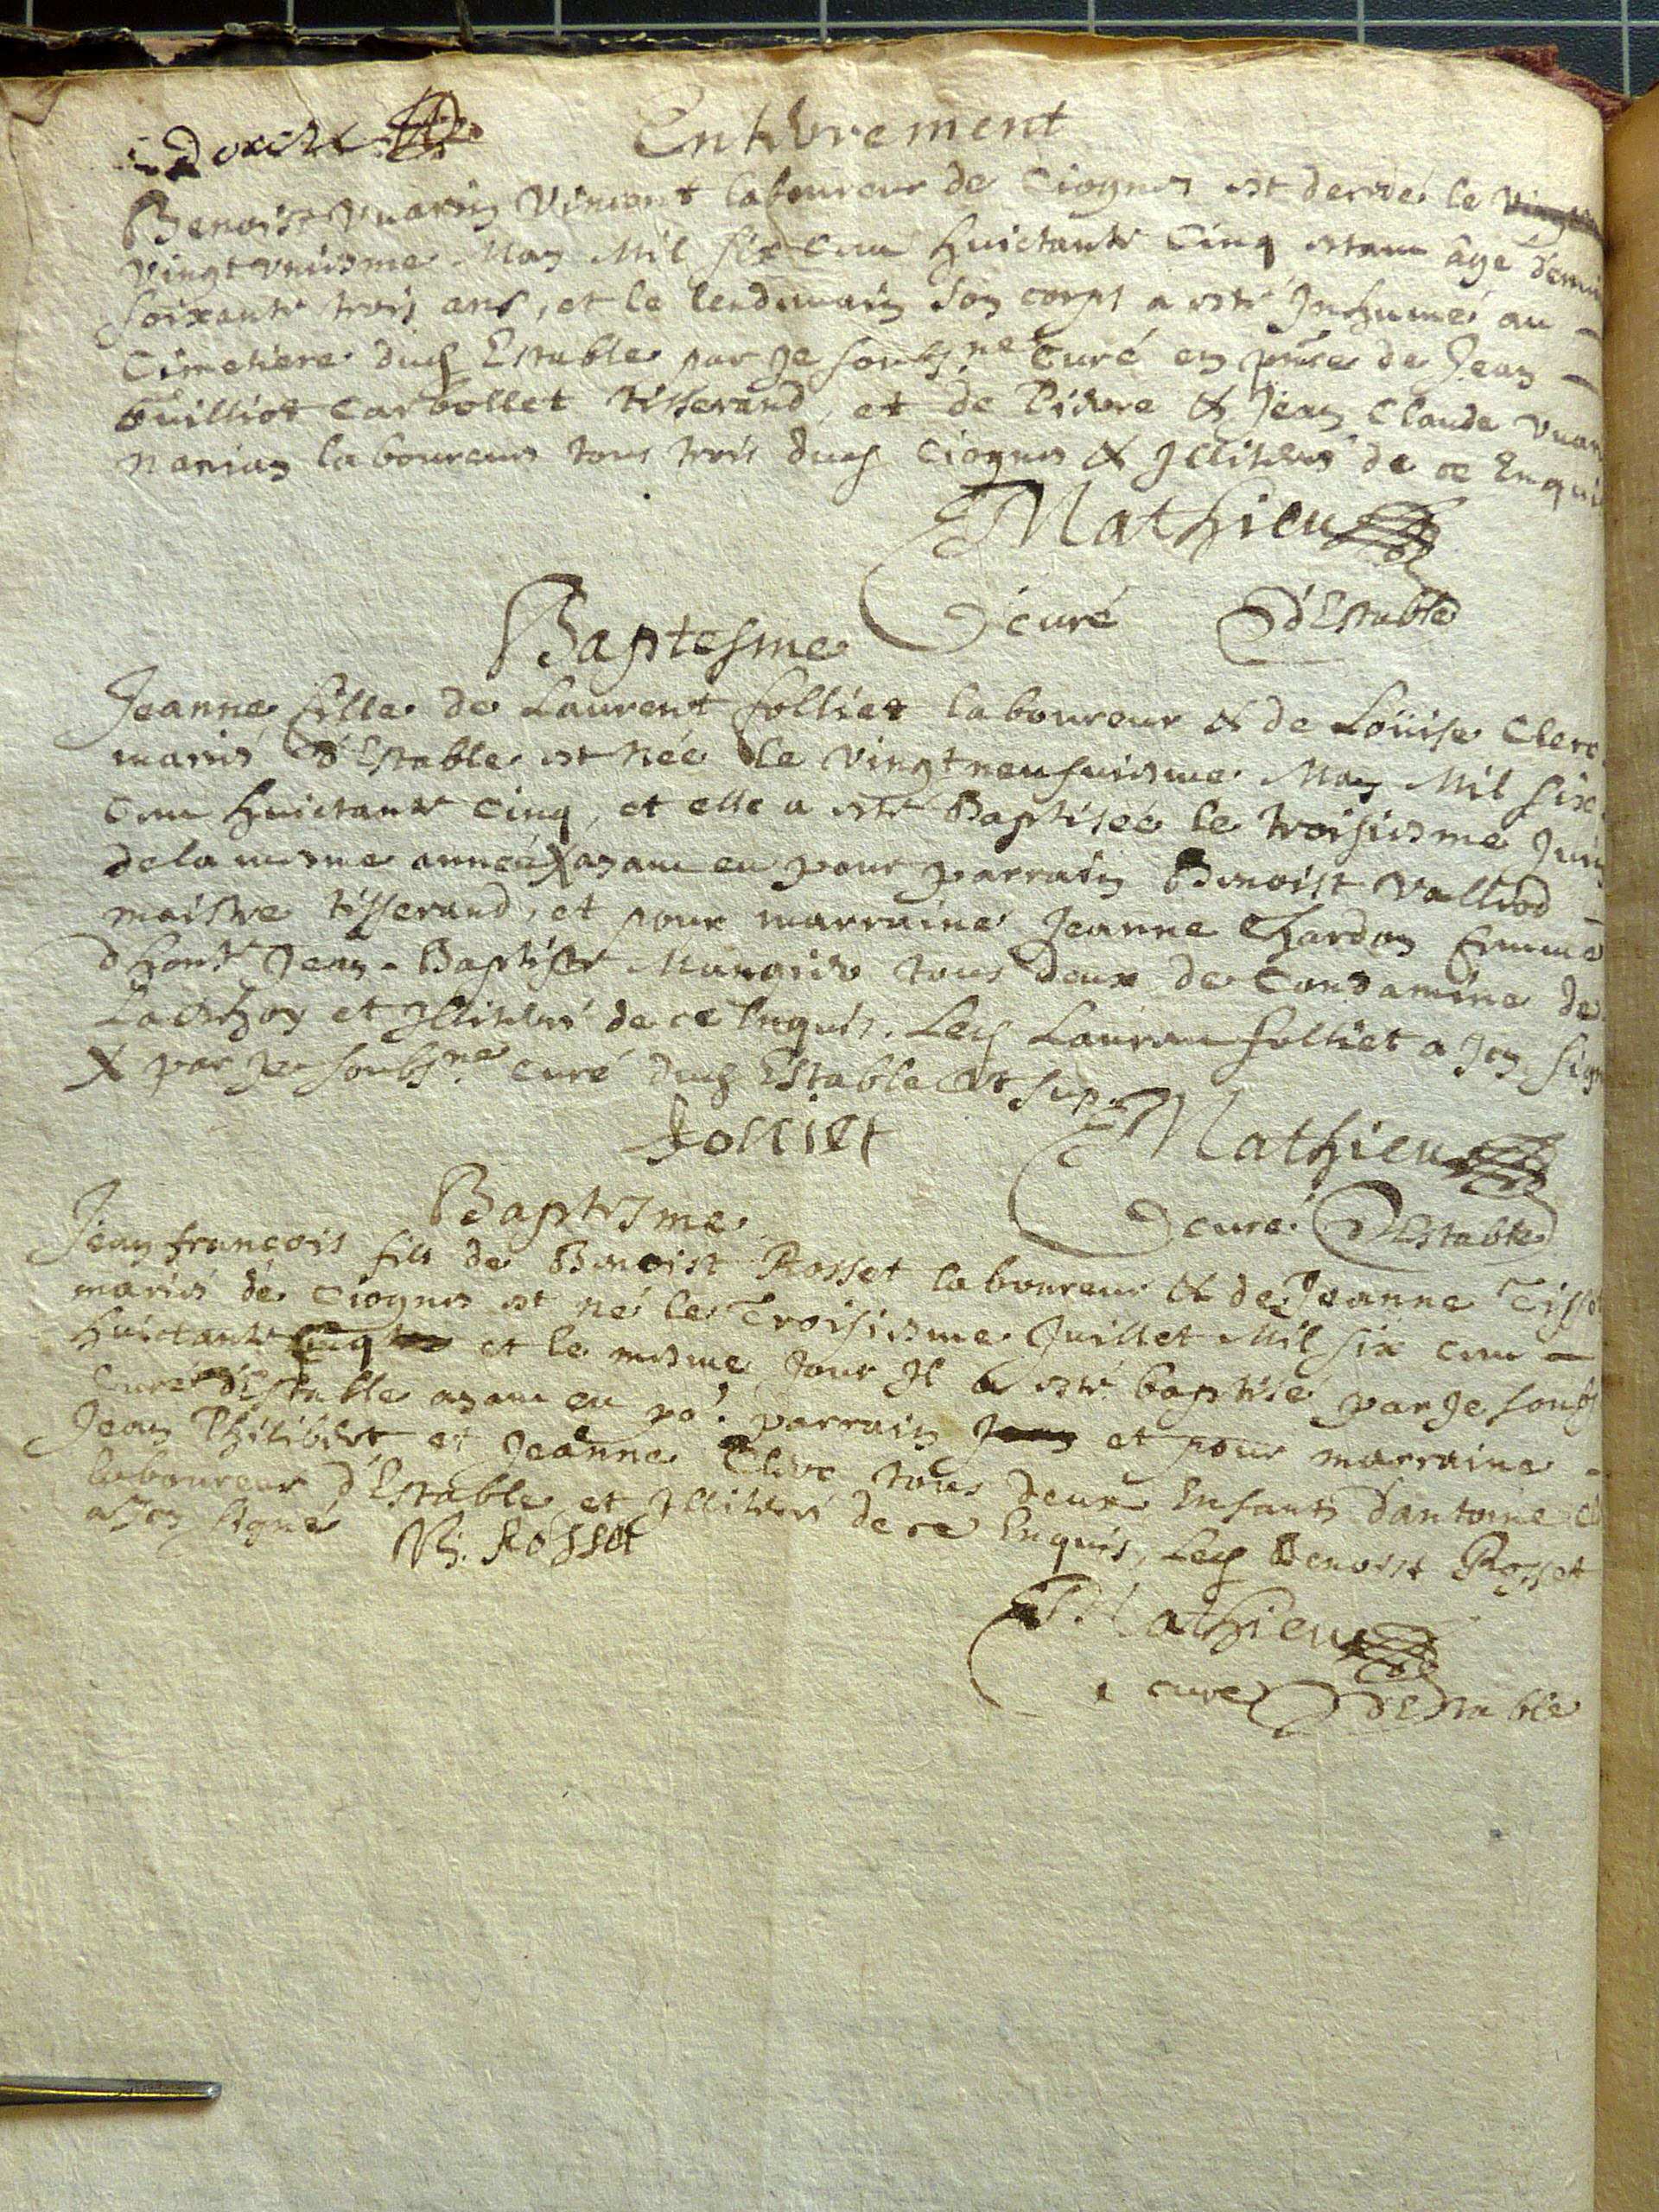 Enterrement
Benoist vuarin Vincent laboureur de Ciognes est decedé le
vingt uniesme May Mil six cent huictante Cinq estant âge
soixante trois ans, et le lendemain son corps a esté Inhumé au
Cimetiere dud Estable par Je soubsne Curé en pnce de Jean
Guilliot Carbollet tisserand, et de Pierre & Jean Claude
laboureurs tous trois dud Ciognes & Illiterés de ce
Mathieu
curé d'Estable
Baptesme
Jeanne fille de Laurent folliet laboureur & de Loüise Clerc
mariés d'Estable est née le vingt neufuiesme May Mil six
cent huictante Cinq, et elle a esté Baptisée le troisiesme Juin
de la mesme année X ayant eu pour parrain Benoist Valliod
maistre tisserand, et pour marraine Jeanne Chardon femme
d'hont Jean-Baptiste tous deux de Condamine de
et Illiterés de ce Enquis. Led Laurent folliet a Icy
X par Je soubsne curé dud Estable Ut sup.
folliet
Mathieu
curé d'Estable
Baptesme
Jean françois fils de Benoist Rosset laboureur & de Jeanne
mariés de Ciognes est né le Troisiesme Juillet Mil six cent
huictante Cinq et le mesme Jour Il a esté baptisé par Je
Curé d'Estable ayant eu po.r parrain Jean et pour marraine
Jean Philibert et Jeanne Clerc tous deux Enfants d'antoine
laboureur d'Estable et Illiterés de ce Enquis, Led Benoist Rosset
a Icy signé
B. Rosset
Mathieu
curé d'Estable